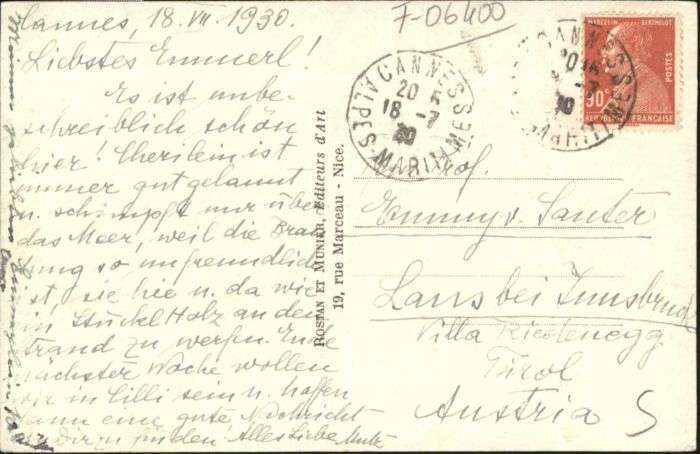 Cannes, 18. VII. 1930.
Liebstes Emmerl!
Es ist unbe-
schreiblich schön
hier! ist
immer gut gelaunt
u. schimpft nur über
das Meer, weil die Bran
dung so unfreundlich
ist, sie hie u. da wie
ein Stückl Holz an den
Strand zu werfen. Ende
nächster Woche wollen
wir in Cilli sein u. hoffen
dann eine gute Nachricht
von Dir zu finden. Alles Liebe
ROSTAN ET MUNIER, Éditeurs d'Art
19, rue Marceau - Nice.
F-06400
CANNES
20 15
18 -7
30
ALPES-MARITIMES
CANNES
20 15
-7
30
MARITIMES
MARCELIN BERTHELOT
POSTES
90c
RÉPUBLIQUE FRANÇAISE
Emmy v. Santer
Lans bei Innsbruck
Villa Riedenegg
Tirol
Austria